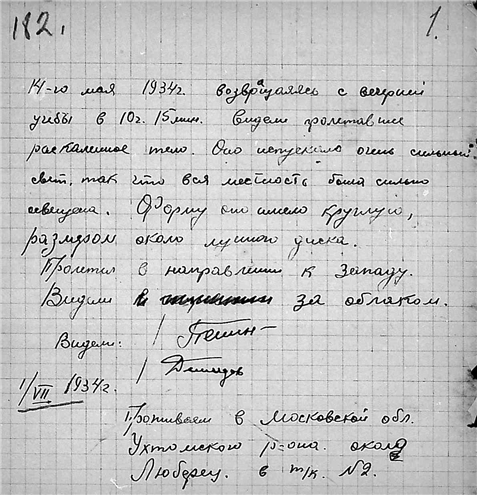 182. 1.
14-го мая 1934г. возвращаясь с вечерней
учебы в 10ч. 15мин. видели пролетавшее
раскаленное тело. Оно испускало очень сильный
свет, так что вся местность была сильно
освещена. Форму оно имело круглую,
размером около лунного диска.
Пролетел в направлении к западу.
Видели за облаком.
Видели:
1/VII 1934г.
Проживаем в Московской обл.
Ухтомского р-она. около
Люберец. в т/к №2.